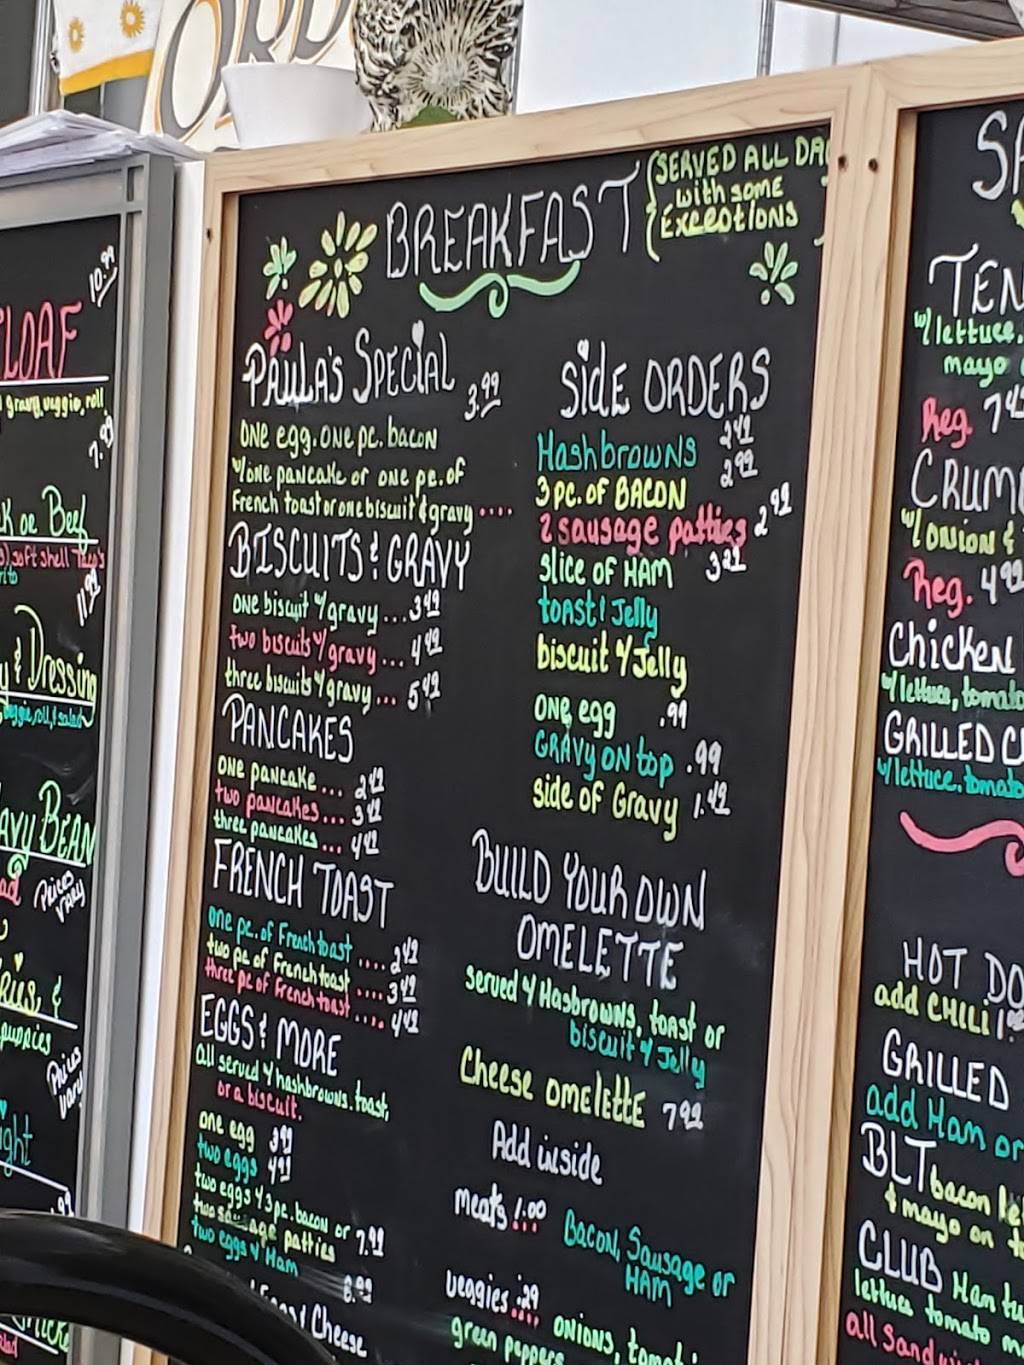 10.99
LOAF
gravy, veggie, roll
7.99
or Beef
soft shell
11.99
& Dressing
veggie, roll, & salad
BEAN
Prices
vary
Prices
vary
BREAKFAST
SERVED ALL DA
with some
Exceptions
PAULA'S SPECIAL 3.99
ONE egg. ONE pc. bacon
w/one pancake or one pc. of
French toast or one biscuit & gravy ....
BISCUITS & GRAVY
ONE biscuit w/gravy ... 3.49
two biscuits w/gravy ... 4.49
three biscuits w/gravy ... 5.49
PANCAKES
ONE pancake ... 2.49
two pancakes ... 3.49
three pancakes ... 4.49
FRENCH TOAST
one pc. of French toast .... 2.49
two pc of French toast .... 3.49
three pc of French toast .... 4.49
EGGS & MORE
all served w/hashbrowns. toast,
or a biscuit.
one egg 3.49
two eggs 4.49
two eggs w/3 pc. bacon or 7.99
two sausage patties
two eggs w/ Ham 8.99
Cheese
Side ORDERS
Hashbrowns 2.49
3 pc. of BACON 2.99
2 sausage patties 2.99
slice of HAM 3.29
toast & Jelly
biscuit w/Jelly
ONE egg .99
GRAVY ON top .99
side of Gravy 1.49
BUILD YOUR OWN
OMELETTE
served w/Hasbrowns, toast or
biscuit w/ Jelly
Cheese OMELETTE 7.99
Add inside
meats 1.00 Bacon, Sausage or
HAM
veggies .29 ONIONS,
green peppers
w/lettuce,
mayo
Reg. 7.4
w/ONION &
Reg. 4.99
Chicken
w/lettuce, tomato
GRILLED
w/lettuce, tomato
HOT DO
add CHILI 1.
GRILLED
add Ham or
BLT bacon
& mayo on
CLUB Ham
lettuce tomato
all